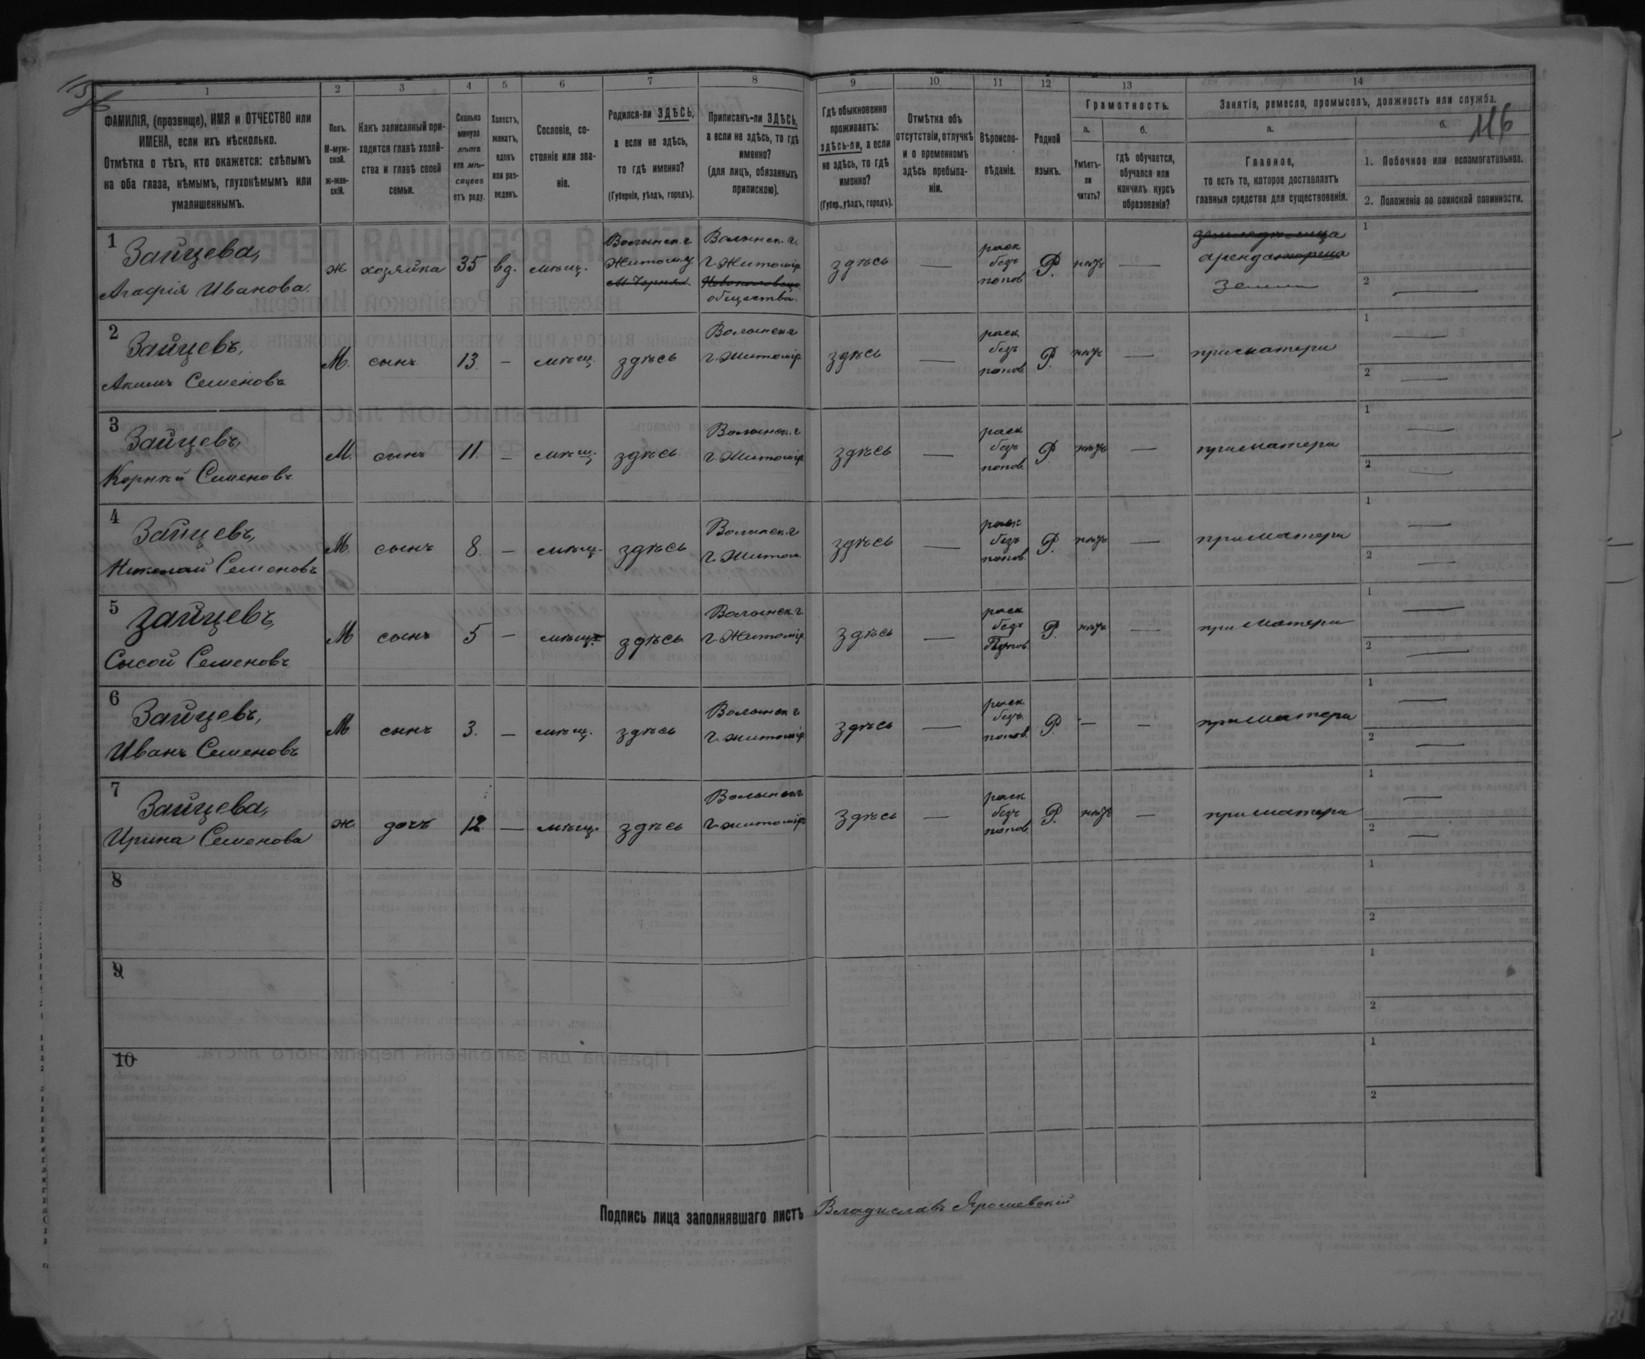 116
1 2 3 4 5 6 7 8 9 10 11 12 13 14
ФАМИЛІЯ, (прозвище), ИМЯ и ОТЧЕСТВО или ИМЕНА, если ихъ нѣсколько.
Отмѣтка о тѣхъ, кто окажется: слѣпымъ на оба глаза, нѣмымъ, глухонѣмымъ или умалишеннымъ.
Полъ. М-муж-ской. ж-жен-скій.
Какъ записанный при-ходится главѣ хозяй-ства и главѣ своей семьи.
Сколько минуло лѣтъ или мѣ-сяцевъ отъ роду.
Холостъ, женатъ, вдовъ или раз-веденъ.
Сословіе, со-стояніе или зва-ніе.
Родился-ли ЗДѢСЬ, а если не здѣсь, то гдѣ именно?
(Губернія, уѣздъ, городъ).
Приписанъ-ли ЗДѢСЬ, а если не здѣсь, то гдѣ именно?
(для лицъ, обязанныхъ припискою).
Гдѣ обыкновенно проживаетъ: здѣсь-ли, а если не здѣсь, то гдѣ именно?
(Губер., уѣздъ, городъ).
Отмѣтка объ отсутствіи, отлучкѣ и о временномъ здѣсь пребыва-ніи.
Вѣроиспо-вѣданіе.
Родной языкъ.
Грамотность.
а. Умѣетъ-ли читать?
б. гдѣ обучается, обучался или кончилъ курсъ образованія?
Занятіе, ремесло, промыселъ, должность или служба.
а. Главное,
то есть то, которое доставляетъ главныя средства для существованія.
б.
1. Побочное или вспомогательное.
2. Положеніе по воинской повинности.
1 Зайцева, Агафія Иванова ж хозяйка 35 вд. мѣщ. Волынск. г Житоміру Волынск. г. г. Житомір общества здѣсь — раск безъ попов Р. нѣтъ — аренда земли 1 2 —
2 Зайцевъ, Акимъ Семеновъ М. сынъ 13 — мѣщ здѣсь Волынск г г. Житомір здѣсь — раск безъ попов Р. нѣтъ — при матери 1 — 2 —
3 Зайцевъ, Корній Семеновъ М. сынъ 11. — мѣщ. здѣсь Волынск. г г. Житомір здѣсь — раск безъ попов Р нѣтъ — при матери 1 — 2 —
4 Зайцевъ, Николай Семеновъ М. сынъ 8. — мѣщ. здѣсь Волынск. г г. Житом здѣсь — раск безъ попов Р. нѣтъ — при матери 1 — 2 —
5 Зайцевъ, Сысой Семеновъ М сынъ 5 — мѣщ. здѣсь Волынск г г. Житомір здѣсь — раск безъ Попов Р. нѣтъ — при матери 1 — 2 —
6 Зайцевъ, Иванъ Семеновъ М сынъ 3. — мѣщ. здѣсь Волынск г г. Житомір здѣсь — раск безъ попов Р. — — при матери 1 — 2 —
7 Зайцева, Ирина Семенова ж дочь 12 — мѣщ. здѣсь Волынск г г. Житомір здѣсь — раск безъ попов Р. нѣтъ — при матери 1 — 2 —
8 1 2
9 1 2
10 1 2
Подпись лица заполнявшаго листъ Владиславъ Ярошевскій